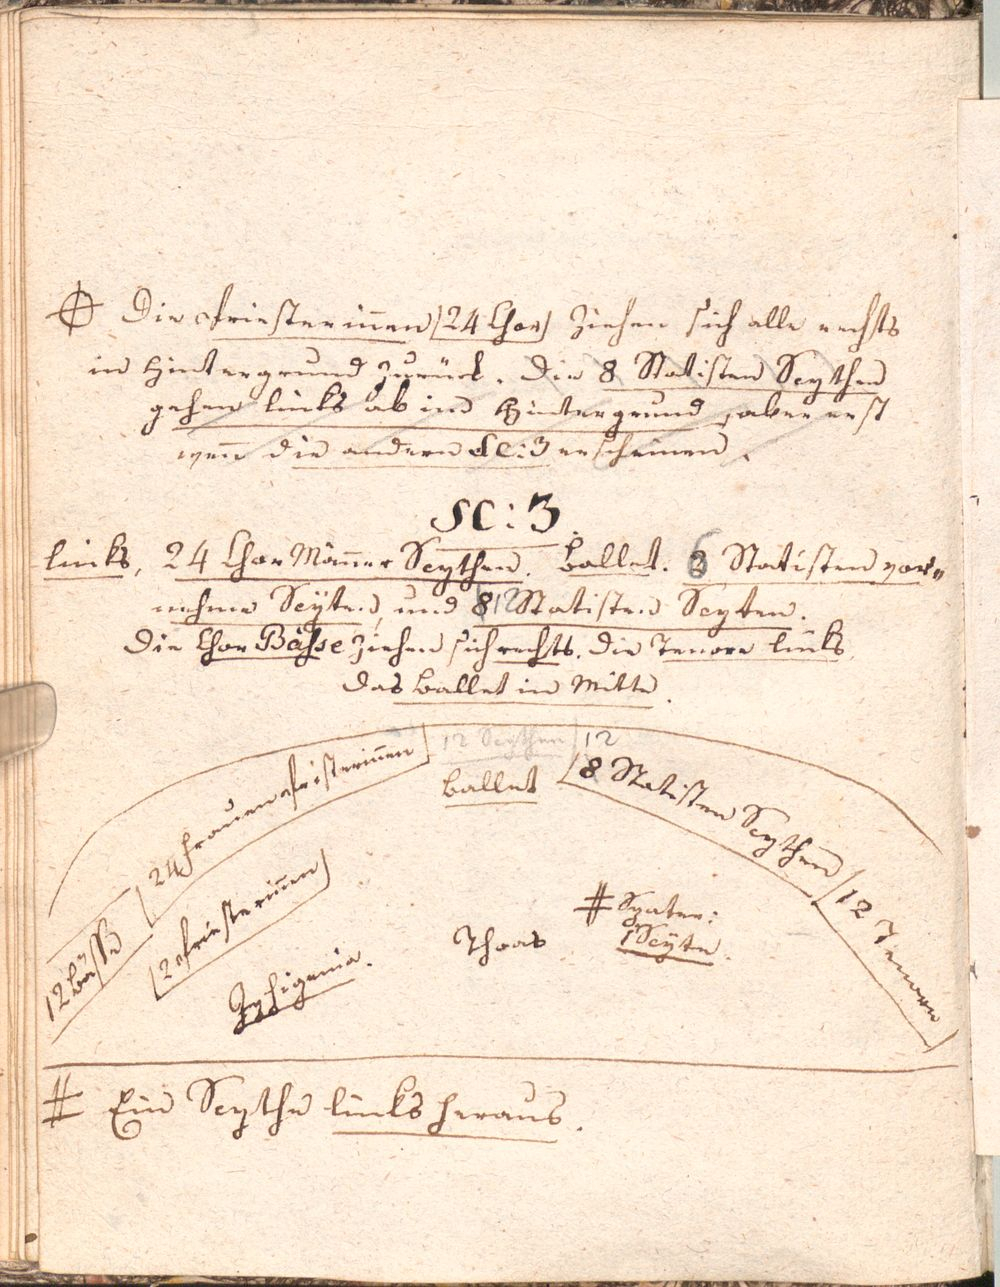 Die Priesterinnen (24 Chor) ziehen sich alle rechts
in Hintergrund zurück. Die 8 Statisten Scythen
gehen links ab in Hintergrund, aber erst
wenn die andern Sc: 3 erscheinen.
Sc: 3.
links, 24 Chor Männer Scythen. Ballet. 6 Statisten vor=
nehme Scÿten, und 12 Statisten Scyten.
Die Chor Bässe ziehen sich rechts. die Tenore links
das Ballet in Mitte.
12 Scythen
12
Ballet
8 Statisten Scythen
24 Frauen Pristerinnen
12 Bässe
2 Priesterinnen
12 Tenore
# Später:
1 Scÿte.
Thoas
Iphigenia.
# Ein Scythe links heraus.